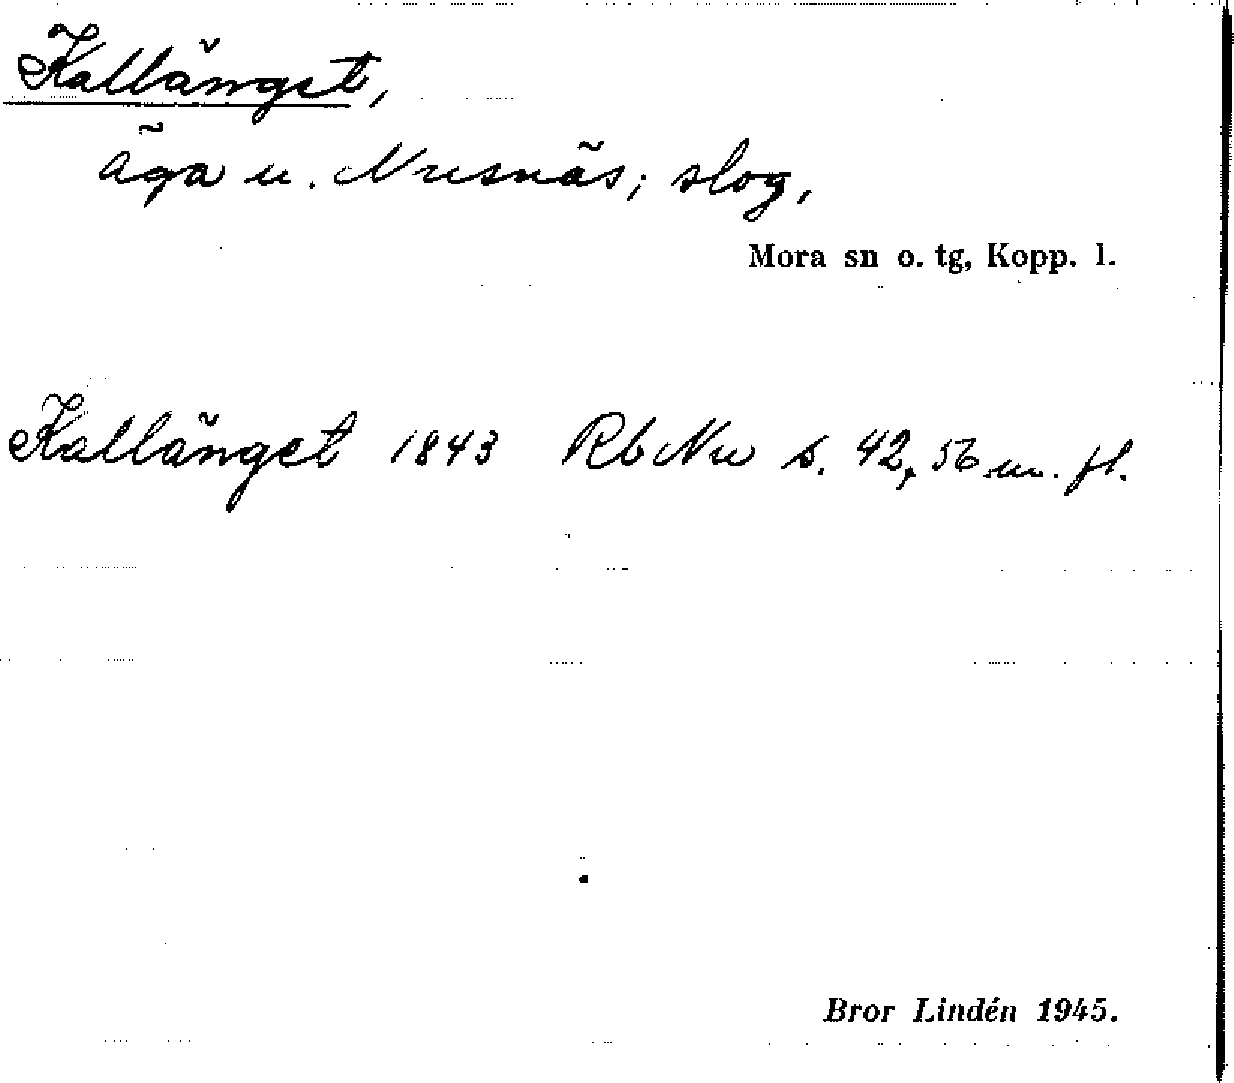 Kallänget,
äga u. Nusnäs; slog,
Mora sn o. tg, Kopp. l.
Kallänget 1843 Rb Nu s. 42, 56 m. fl.
Bror Lindén 1945.